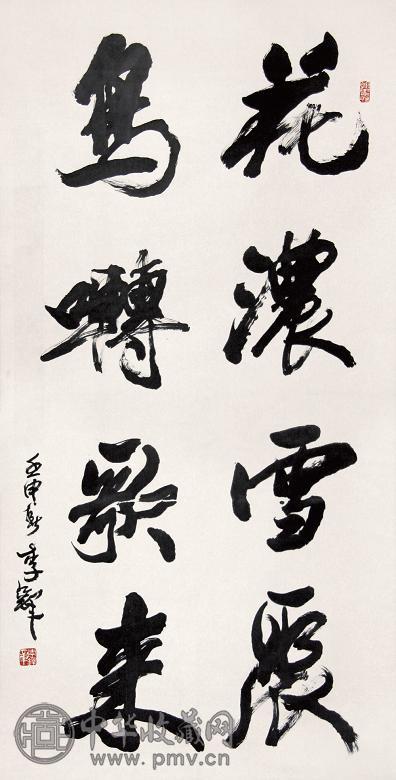 花濃雪聚
鳥囀歌来
壬申 李鐸
中华收藏网
www.pmv.cn